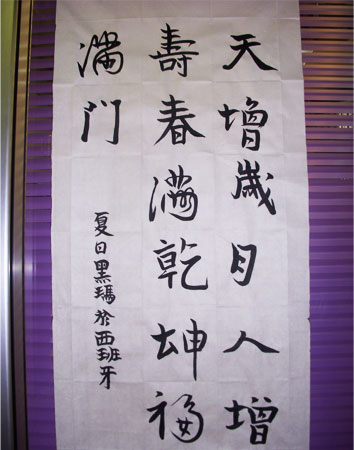 天增歲月人增
壽春滿乾坤福
滿門
夏日黑瑪於西班牙